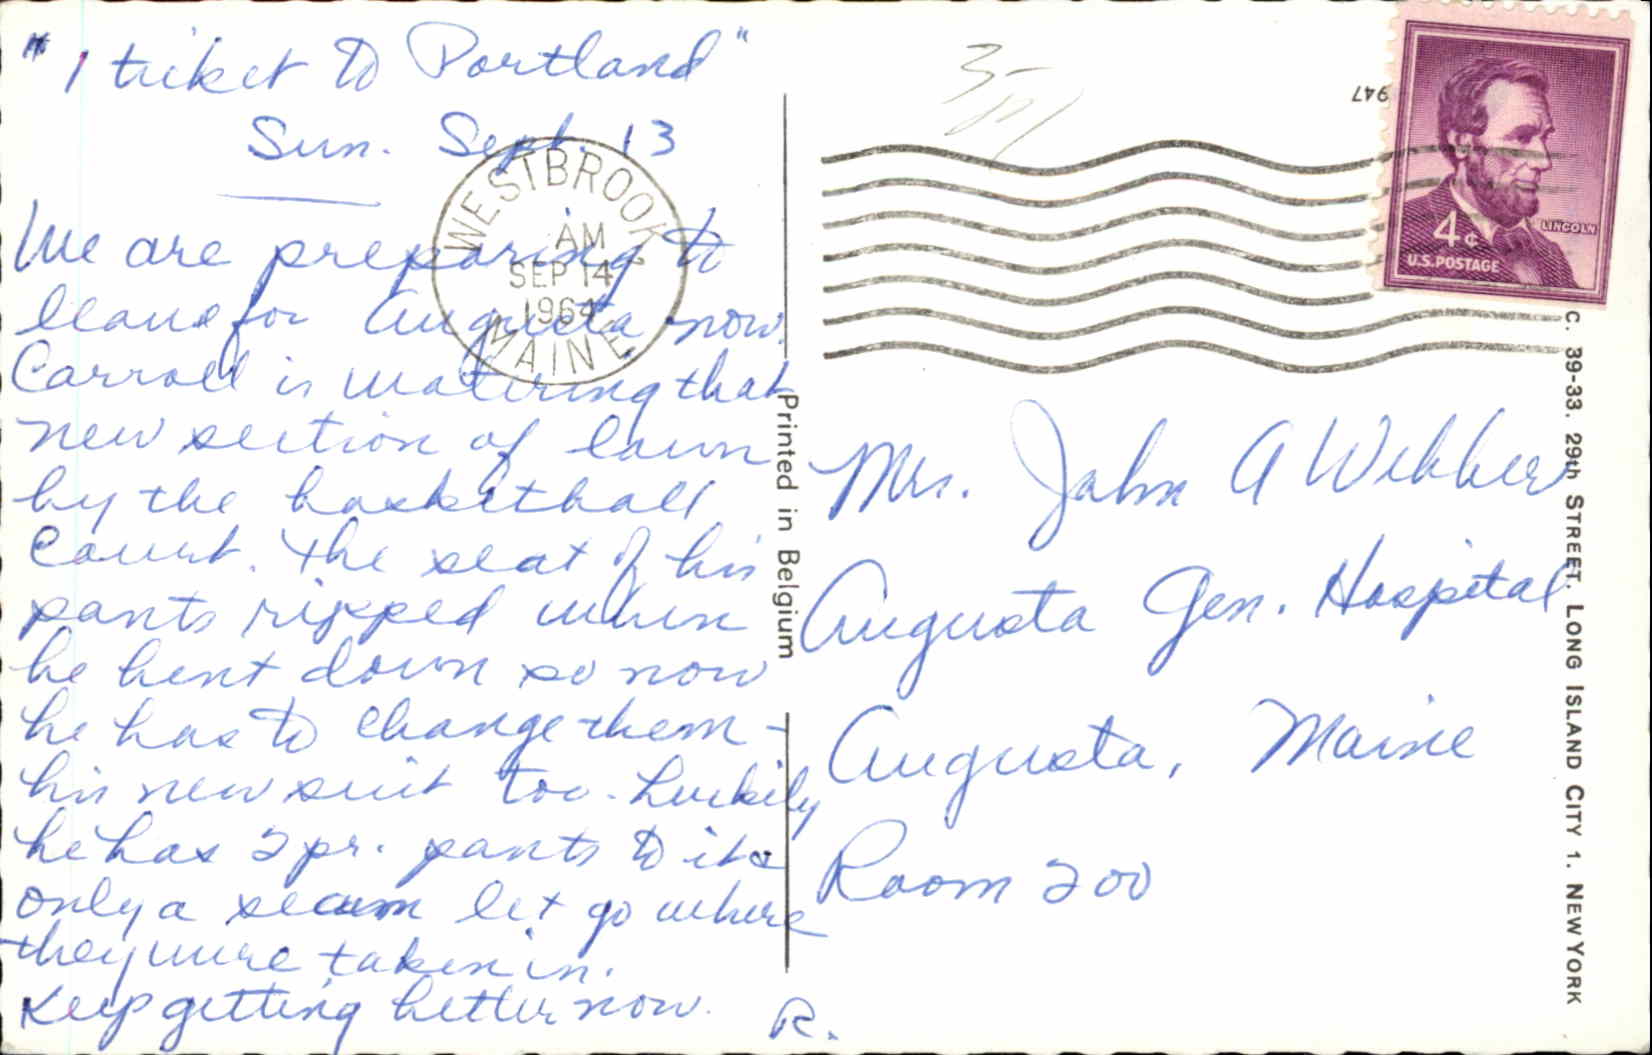 "1 ticket to Portland"
Sun. Sept. 13
We are preparing to
leave for Augusta now.
Carroll is watering that
new section of lawn
by the basketball
court. The seat of his
pants ripped when
he bent down so now
he has to change them -
his new suit too. Luckily
he has 2 pr. pants to it &
only a seam let go where
they were taken in.
Keep getting better now.
R.
WESTBROOK
AM
SEP 14
1964
MAINE
Printed in Belgium
947
4¢
LINCOLN
U.S. POSTAGE
Mrs. John A Webber
Augusta Gen. Hospital
Augusta, Maine
Room 200
C. 39-33. 29th STREET, LONG ISLAND CITY 1. NEW YORK